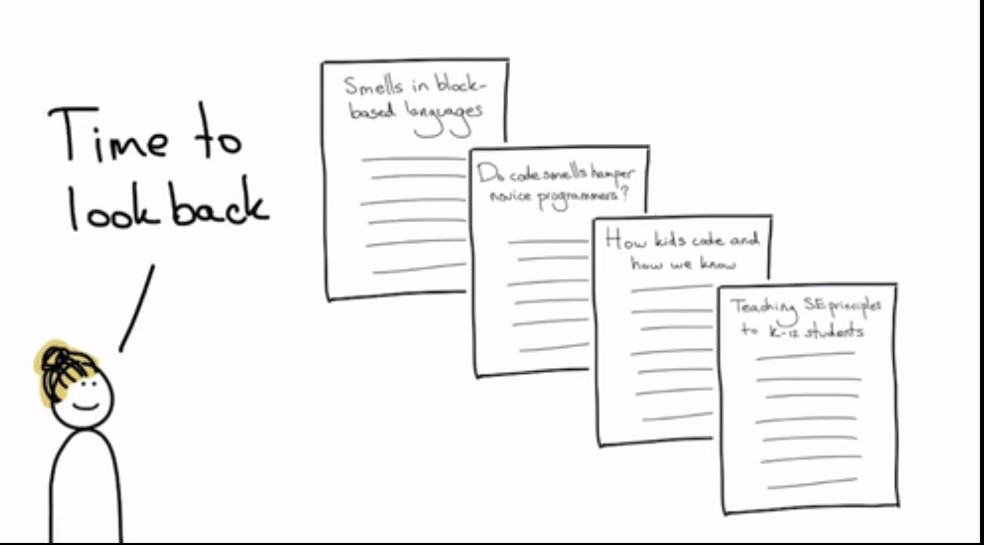 Time to
look back
Smells in block-
based languages
Do code smells hamper
novice programmers?
How kids code and
how we know
Teaching SE principles
to K-12 students